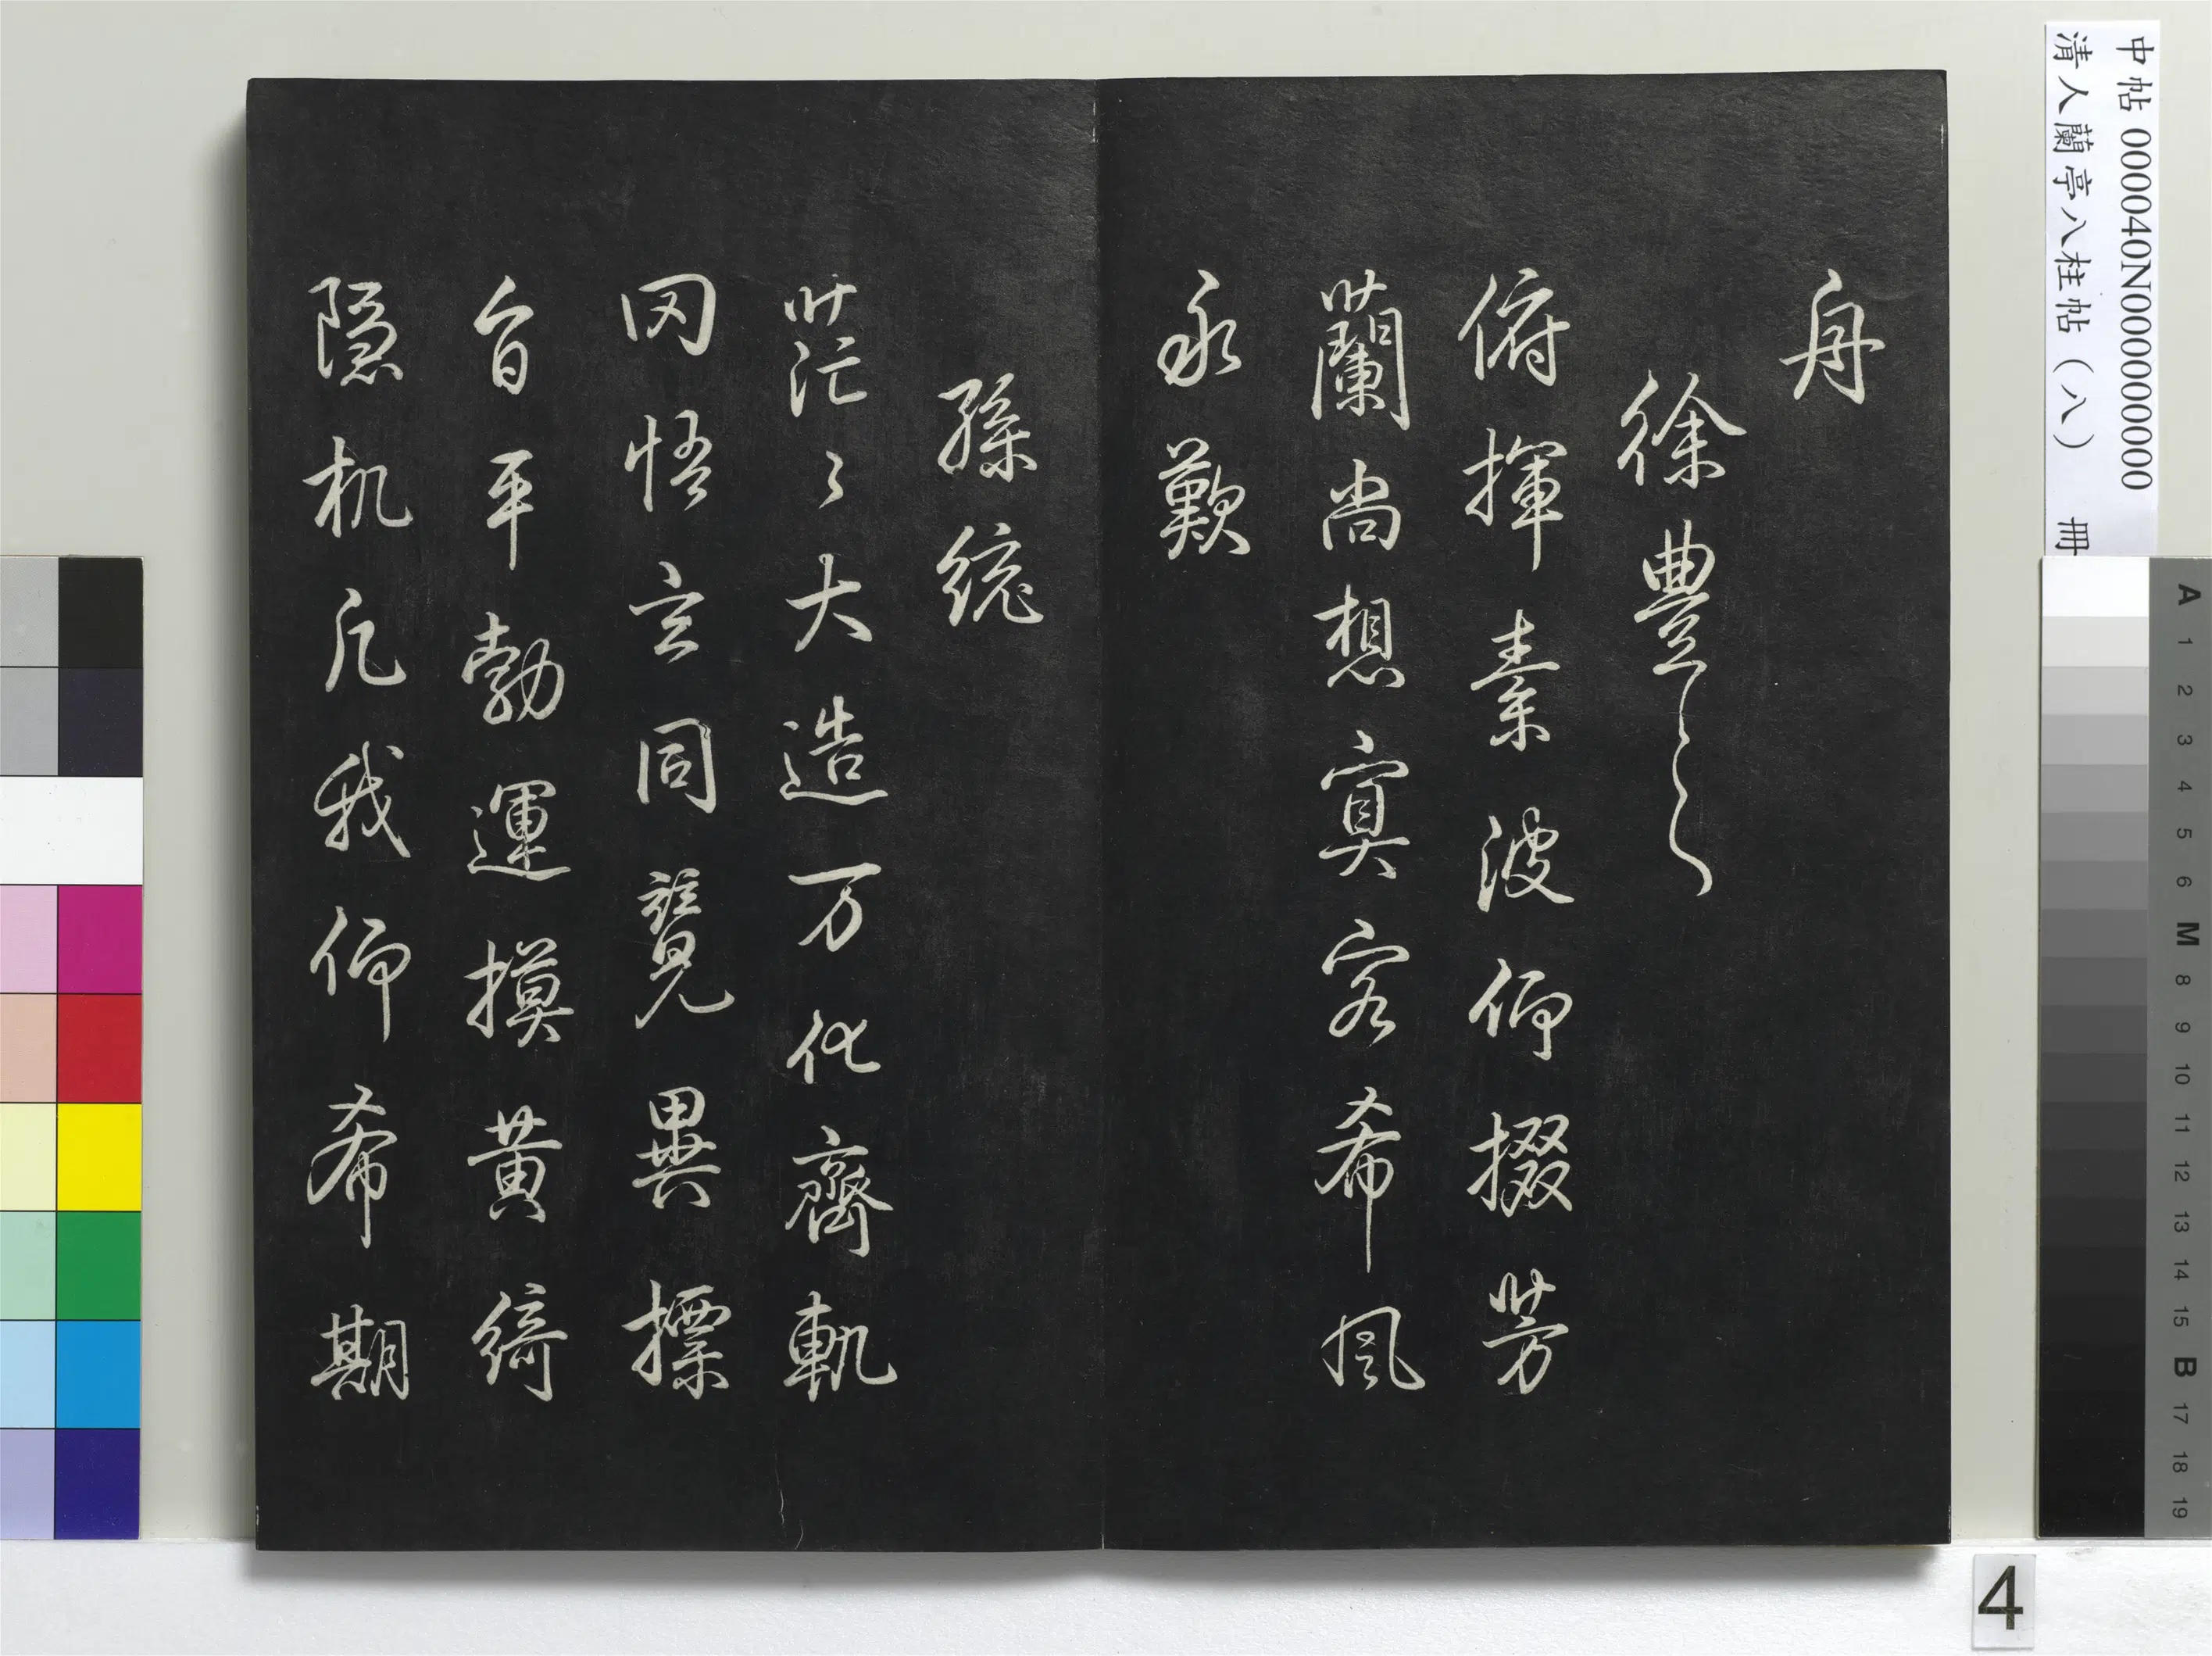 舟
徐豐之
俯揮素波仰掇芳
蘭尚想寘客希風
永歎
孫統
茫々大造万化齊軌
罔悟玄同竸異摽
旨平勃運摸黄綺
隠机凢我仰希期
中帖 000040N000000000
清人蘭亭八柱帖(八) 冊
A 1 2 3 4 5 6 M 8 9 10 11 12 13 14 15 B 17 18 19
4